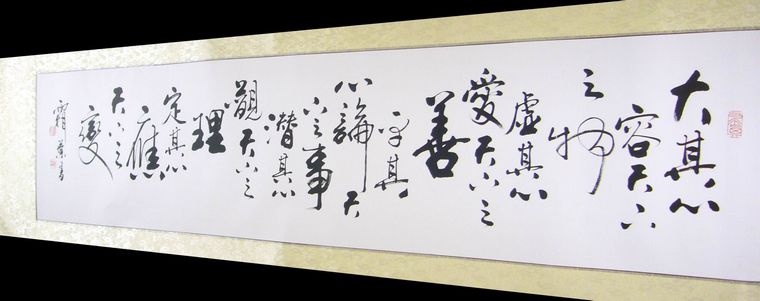 大其心
容天下
之物
虛其心
愛天下之
善
平其
心論天
下之事
潛其心
觀天下之
理
定其心
應
天下之
變